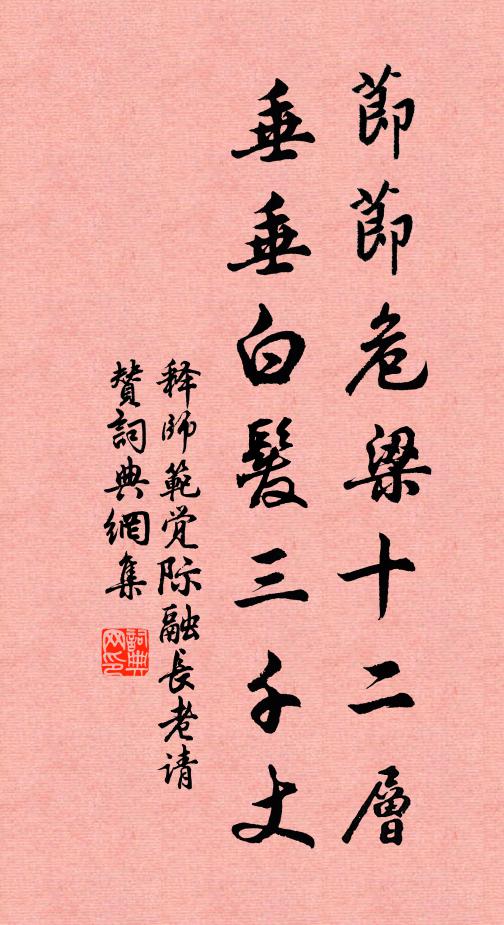 節節危梁十二層
垂垂白髮三千丈
释師範觉际融長老请
贊詞典網集
詞典网印